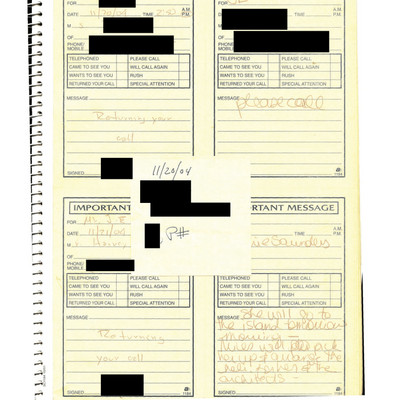 FOR
DATE 11/20/04 TIME 2:50 A.M. P.M.
M
OF
PHONE/
MOBILE
TELEPHONED PLEASE CALL
CAME TO SEE YOU WILL CALL AGAIN
WANTS TO SEE YOU RUSH
RETURNED YOUR CALL SPECIAL ATTENTION
MESSAGE
Returning your
call
SIGNED
A.M.
P.M.
PHONE/
MOBILE
TELEPHONED PLEASE CALL
CAME TO SEE YOU WILL CALL AGAIN
WANTS TO SEE YOU RUSH
RETURNED YOUR CALL SPECIAL ATTENTION
MESSAGE
please call
1184
11/20/04
P#
IMPORTANT
FOR Mr. J.E
DATE 11/21/04
M
OF
PHONE/
MOBILE
TELEPHONED PLEASE CALL
CAME TO SEE YOU WILL CALL AGAIN
WANTS TO SEE YOU RUSH
RETURNED YOUR CALL SPECIAL ATTENTION
MESSAGE
Returning
your call
SIGNED
1184
RTANT MESSAGE
A.M.
P.M.
Saunders
TELEPHONED PLEASE CALL
CAME TO SEE YOU WILL CALL AGAIN
WANTS TO SEE YOU RUSH
RETURNED YOUR CALL SPECIAL ATTENTION
MESSAGE
She will go to
the island tomorrow
morning -
her up
the
architects -
SIGNED
1184